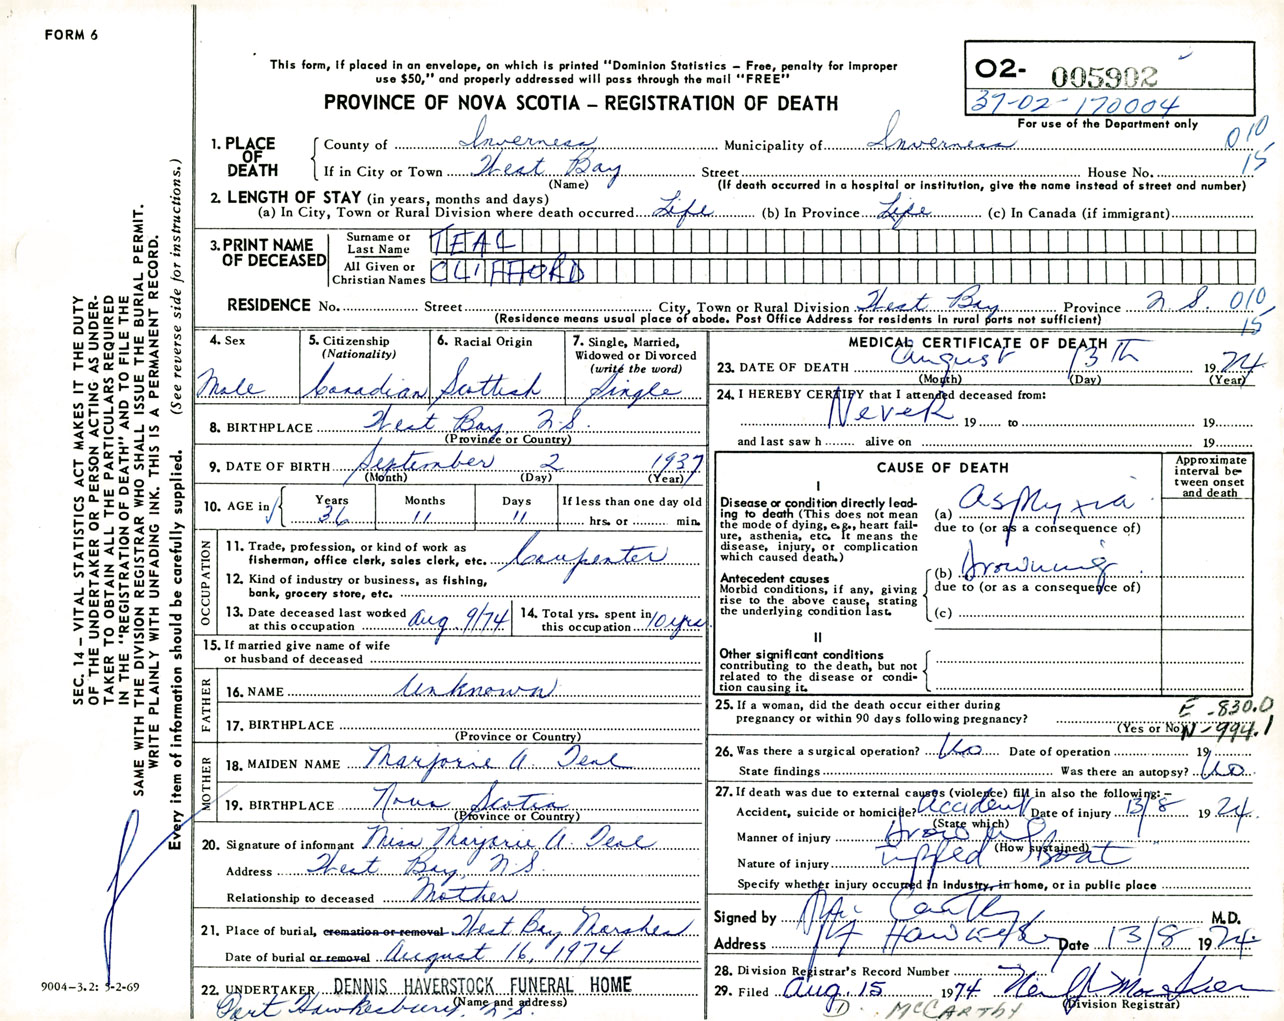 FORM 6
This form, if placed in an envelope, on which is printed "Dominion Statistics – Free, penalty for improper
use $50," and properly addressed will pass through the mail "FREE"
PROVINCE OF NOVA SCOTIA – REGISTRATION OF DEATH
02- 005902
37-02-170004
For use of the Department only
1. PLACE OF DEATH
County of Inverness Municipality of Inverness 010
If in City or Town West Bay Street House No. 15
(Name) (If death occurred in a hospital or institution, give the name instead of street and number)
2. LENGTH OF STAY (in years, months and days)
(a) In City, Town or Rural Division where death occurred Life (b) In Province Life (c) In Canada (if immigrant)
3. PRINT NAME OF DECEASED
Surname or Last Name TEAL
All Given or Christian Names CLIFFORD
RESIDENCE No. Street City, Town or Rural Division West Bay Province N.S. 010
(Residence means usual place of abode. Post Office Address for residents in rural parts not sufficient) 15
4. Sex
Male
5. Citizenship
(Nationality)
Canadian
6. Racial Origin
Scottish
7. Single, Married,
Widowed or Divorced
(write the word)
Single
8. BIRTHPLACE West Bay N.S.
(Province or Country)
9. DATE OF BIRTH September 2 1937
(Month) (Day) (Year)
10. AGE in Years 36 Months 11 Days 11 If less than one day old
hrs. or min.
OCCUPATION
11. Trade, profession, or kind of work as
fisherman, office clerk, sales clerk, etc. Carpenter
12. Kind of industry or business, as fishing,
bank, grocery store, etc.
13. Date deceased last worked
at this occupation Aug. 9/74
14. Total yrs. spent in
this occupation 10 yrs
15. If married give name of wife
or husband of deceased
FATHER
16. NAME Unknown
17. BIRTHPLACE
(Province or Country)
MOTHER
18. MAIDEN NAME Marjorie A. Teal
19. BIRTHPLACE Nova Scotia
(Province or Country)
20. Signature of informant Miss Marjorie A. Teal
Address West Bay, N.S.
Relationship to deceased Mother
21. Place of burial, cremation or removal West Bay Marshes
Date of burial or removal August 16, 1974
22. UNDERTAKER DENNIS HAVERSTOCK FUNERAL HOME
(Name and address)
Port Hawkesbury, N.S.
MEDICAL CERTIFICATE OF DEATH
23. DATE OF DEATH August 13th 1974
(Month) (Day) (Year)
24. I HEREBY CERTIFY that I attended deceased from:
Never 19 to 19
and last saw h alive on 19
CAUSE OF DEATH
Approximate
interval be-
tween onset
and death
I
Disease or condition directly lead-
ing to death (This does not mean
the mode of dying, e.g., heart fail-
ure, asthenia, etc. It means the
disease, injury, or complication
which caused death.)
(a) Asphyxia
due to (or as a consequence of)
Antecedent causes
Morbid conditions, if any, giving
rise to the above cause, stating
the underlying condition last.
(b) Drowning
due to (or as a consequence of)
(c)
II
Other significant conditions
contributing to the death, but not
related to the disease or condi-
tion causing it.
25. If a woman, did the death occur either during
pregnancy or within 90 days following pregnancy?
(Yes or No)
E -830.0
N-994.1
26. Was there a surgical operation? No Date of operation 19
State findings Was there an autopsy? No
27. If death was due to external causes (violence) fill in also the following:–
Accident, suicide or homicide? Accident Date of injury 13/8 1974
(State which)
Manner of injury Drowning
(How sustained)
Nature of injury Tipped Boat
Specify whether injury occurred in industry, in home, or in public place
Signed by Mac Carthy M.D.
Address Pt Hawkesby Date 13/8 1974
28. Division Registrar's Record Number
29. Filed Aug. 15 1974
(Division Registrar)
D. McCARTHY
SEC. 14 – VITAL STATISTICS ACT MAKES IT THE DUTY
OF THE UNDERTAKER OR PERSON ACTING AS UNDER-
TAKER TO OBTAIN ALL THE PARTICULARS REQUIRED
IN THE "REGISTRATION OF DEATH" AND TO FILE THE
SAME WITH THE DIVISION REGISTRAR WHO SHALL ISSUE THE BURIAL PERMIT.
WRITE PLAINLY WITH UNFADING INK. THIS IS A PERMANENT RECORD.
Every item of information should be carefully supplied. (See reverse side for instructions.)
9004-3.2: 5-2-69